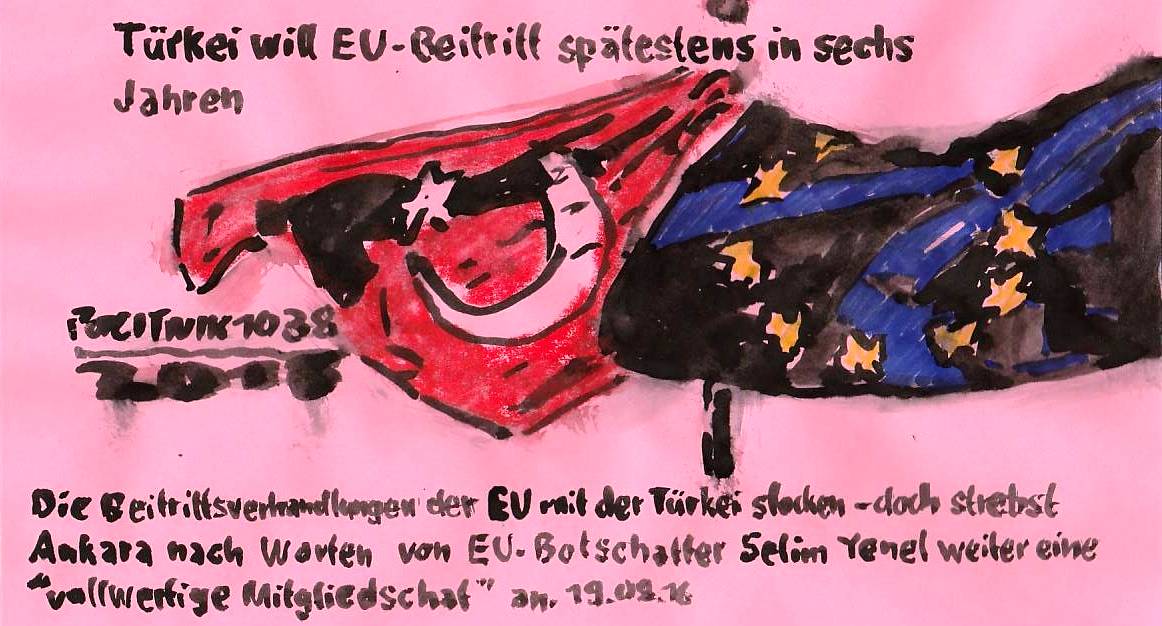 Türkei will EU-Beitritt spätestens in sechs
Jahren
1038
Die Beitrittsverhandlungen der EU mit der Türkei stocken - doch strebst
Ankara nach Worten von EU-Botschafter Selim Yenel weiter eine
"vollwertige Mitgliedschaf" an. 19.08.16